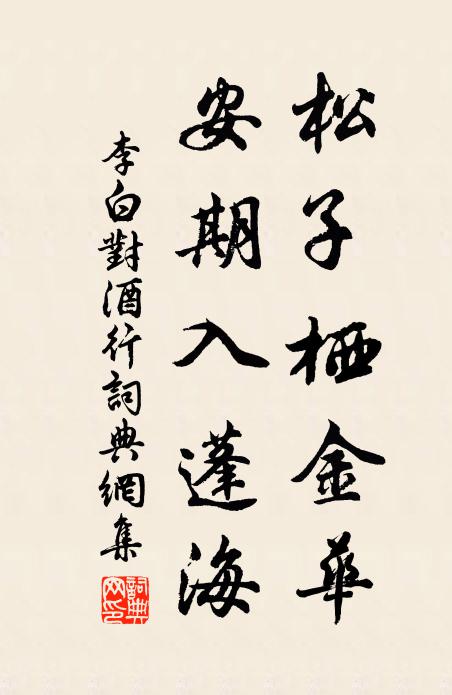 松子栖金華
安期入蓬海
李白對酒行詞典網集
詞典網印